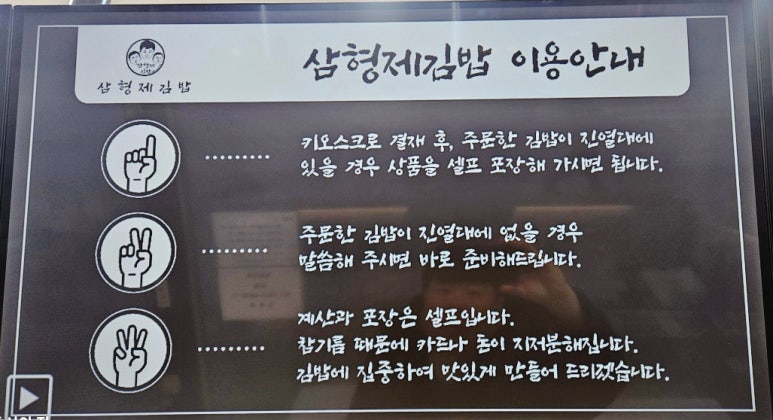 삼형제김밥
삼형제김밥 이용안내
키오스크로 결재 후, 주문한 김밥이 진열대에
있을 경우 상품을 셀프 포장해 가시면 됩니다.
주문한 김밥이 진열대에 없을 경우
말씀해 주시면 바로 준비해드립니다.
계산과 포장은 셀프입니다.
참기름 때문에 카드나 돈이 지저분해집니다.
김밥에 집중하여 맛있게 만들어 드리겠습니다.